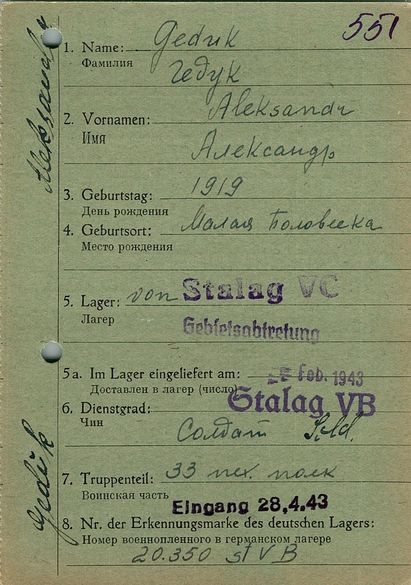 551
1. Name: Gedik
Фамилия
Гедук
2. Vornamen: Aleksandr
Имя
Александр
3. Geburtstag: 1919
День рождения
4. Geburtsort: Малая
Место рождения
5. Lager: von Stalag VC
Лагер
Gebietsabtretung
5a. Im Lager eingeliefert am:
Доставлен в лагер (число) Feb. 1943
Stalag VB
6. Dienstgrad:
Чин
Солдат Sold.
7. Truppenteil: 33 пех. полк
Воинская часть
Eingang 28.4.43
8. Nr. der Erkennungsmarke des deutschen Lagers:
Номер военнопленного в германском лагере
20.350 St VB
Aleksandr
Gedik